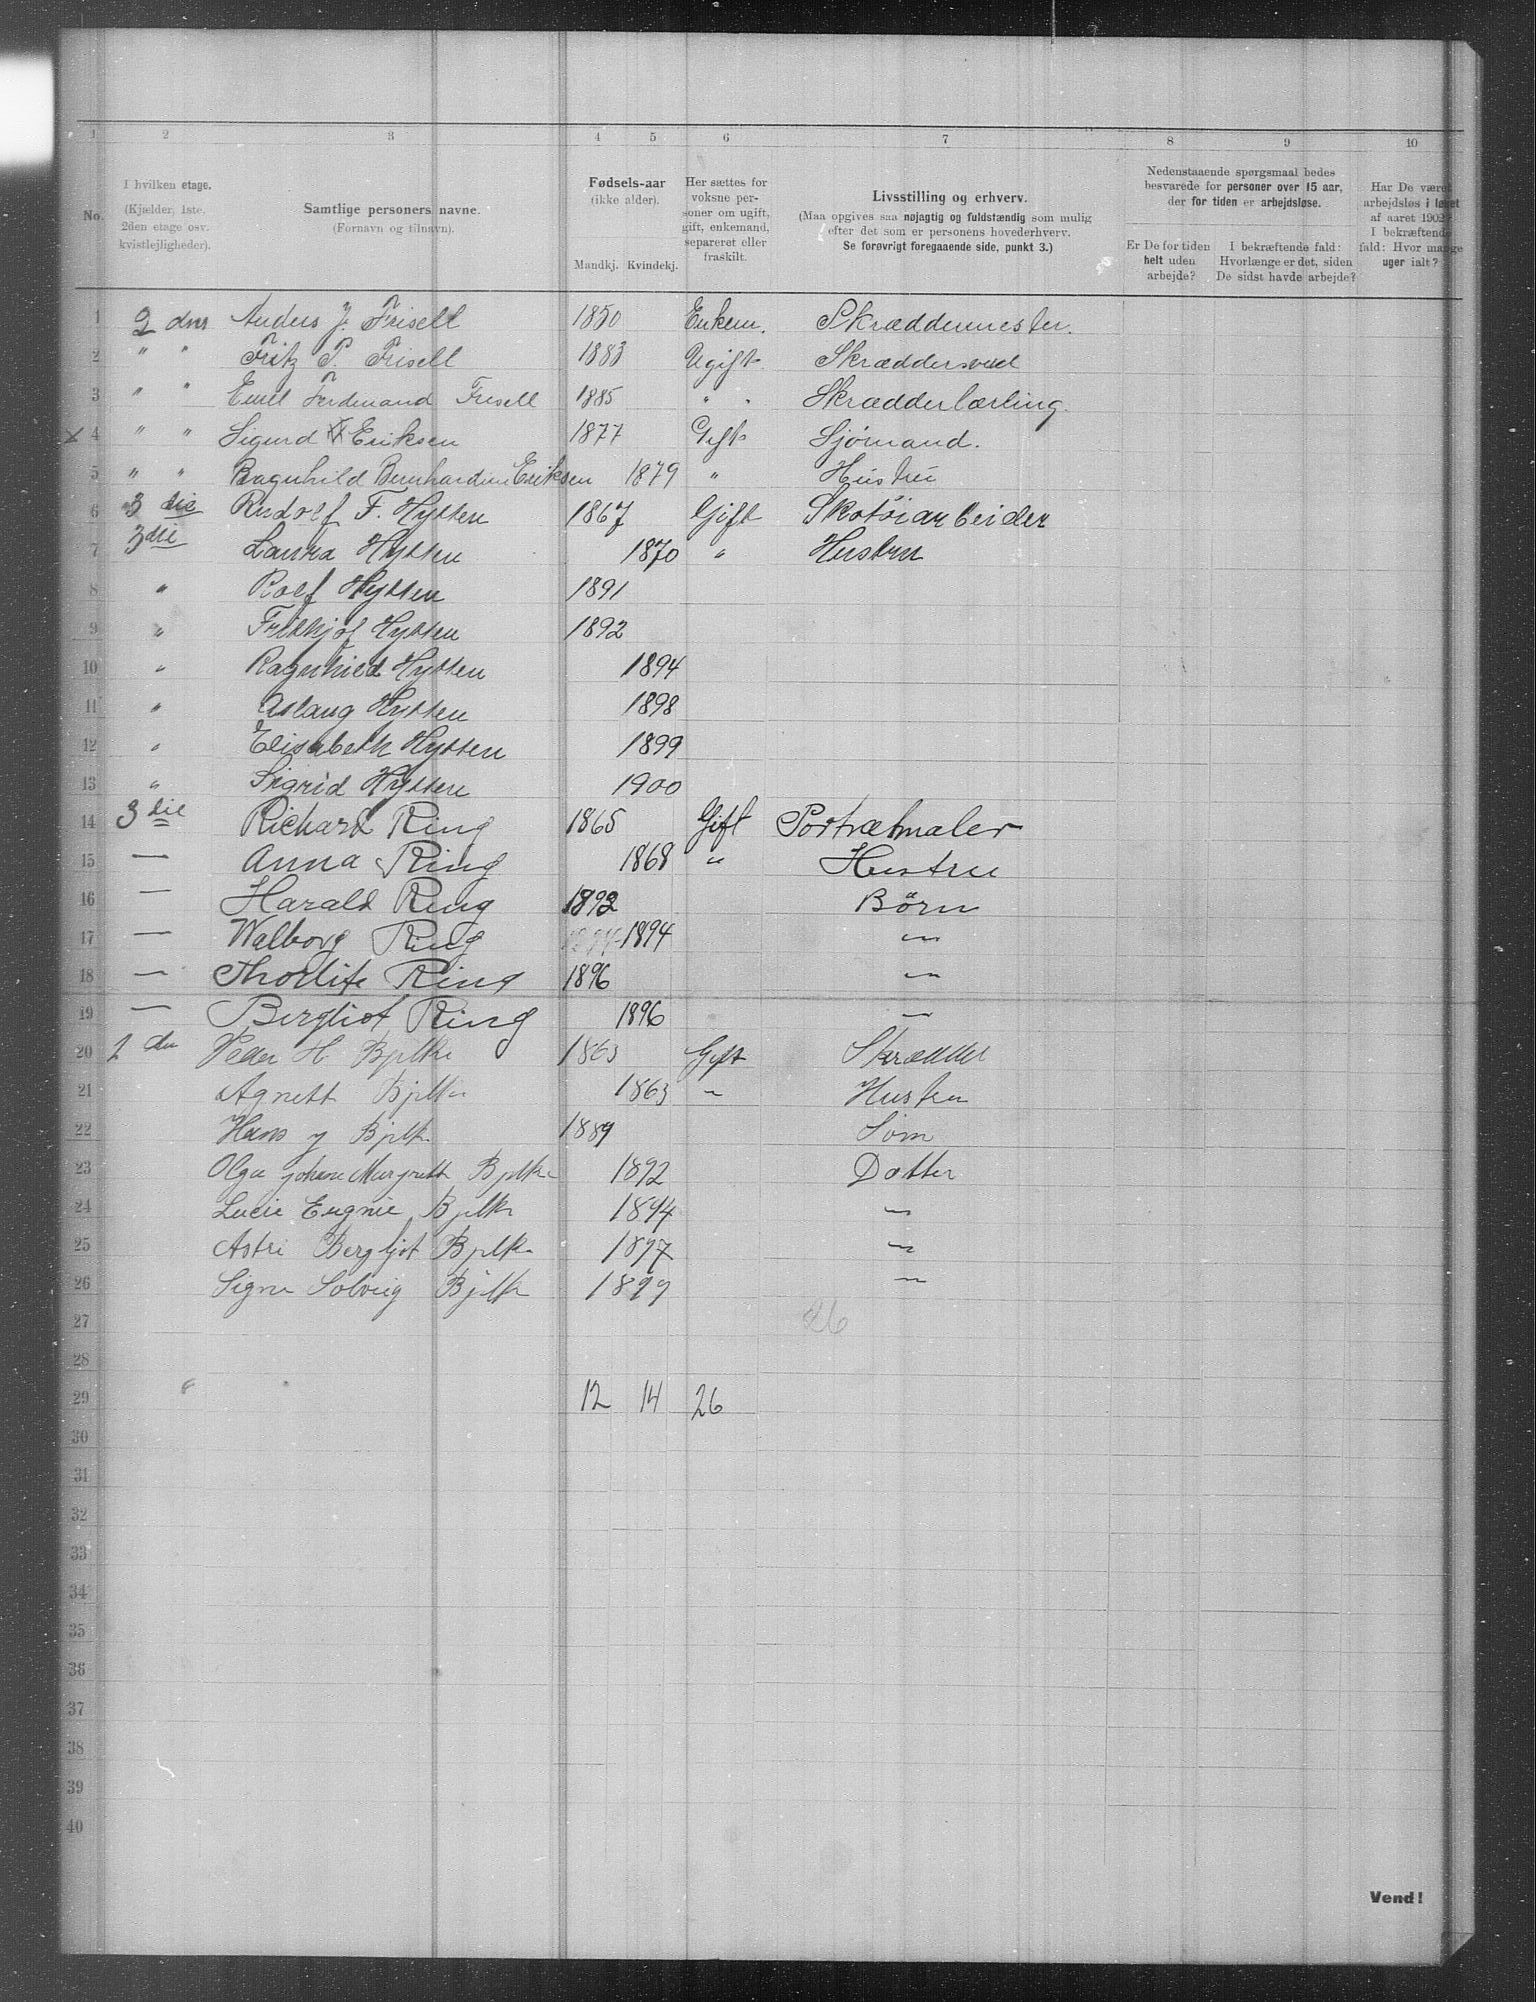 1 2 3 4 5 6 7 8 9 10
No.
I hvilken etage.
(Kjælder, 1ste,
2den etage osv.
kvistlejligheder).
Samtlige personers navne.
(Fornavn og tilnavn).
Fødsels-aar
(ikke alder).
Mandkj. Kvindekj.
Her sættes for
voksne per-
soner om ugift,
gift, enkemand,
separeret eller
fraskilt.
Livsstilling og erhverv.
(Maa opgives saa nøjagtig og fuldstændig som mulig
efter det som er personens hovederhverv.
Se forøvrigt foregaaende side, punkt 3.)
Nedenstaaende spørgsmaal bedes
besvarede for personer over 15 aar,
der for tiden er arbejdsløse.
Er De for tiden
helt uden
arbejde?
I bekræftende fald:
Hvorlænge er det, siden
De sidst havde arbejde?
Har De været
arbejdsløs i løbet
af aaret 1902?
I bekræftende
fald: Hvor mange
uger ialt?
1 2 den Anders J. Frisell 1850 Enkem. Skræddermester.
2 " " Fritz P. Frisell 1883 Ugift Skræddersvend
3 " " Emil Ferdinand Frisell 1885 " " Skrædderlærling.
x 4 " " Sigurd Eriksen 1877 Gift Sjömand.
5 " " Ragnhild Bernhardine Eriksen 1879 " Hustru
6 3 die Rudolf F. Hytten 1867 Gift Skotöiarbeider
7 3 die Laura Hytten 1870 " Hustru
8 " Rolf Hytten 1891
9 " Fritkjof Hytten 1892
10 " Ragnhild Hytten 1894
11 " Aslaug Hytten 1898
12 " Elisabeth Hytten 1899
13 " Sigrid Hytten 1900
14 3 die Richard Ring 1865 Gift Portrætmaler
15 — Anna Ring 1868 " Hustru
16 — Harald Ring 1892 Börn
17 — Walborg Ring 1894 "
18 — Thorleif Ring 1896 "
19 — Bergliot Ring 1896 "
20 2 den Peder H Bjelke 1863 Gift Skrædder
21 Agnett Bjelke 1863 " Hustru
22 Hans J Bjelke 1889 Sön
23 Olga Johane Margrett Bjelke 1892 Datter
24 Lucie Eugenie Bjelke 1894 "
25 Astri Bergljot Bjelke 1897 "
26 Signe Solveig Bjelke 1899 "
27 26
28
29 12 14 26
30
31
32
33
34
35
36
37
38
39
40
Vend!